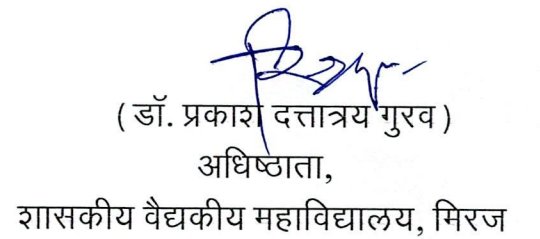 ( डॉ. प्रकाश दत्तात्रय गुरव )
अधिष्ठाता,
शासकीय वैद्यकीय महाविद्यालय, मिरज